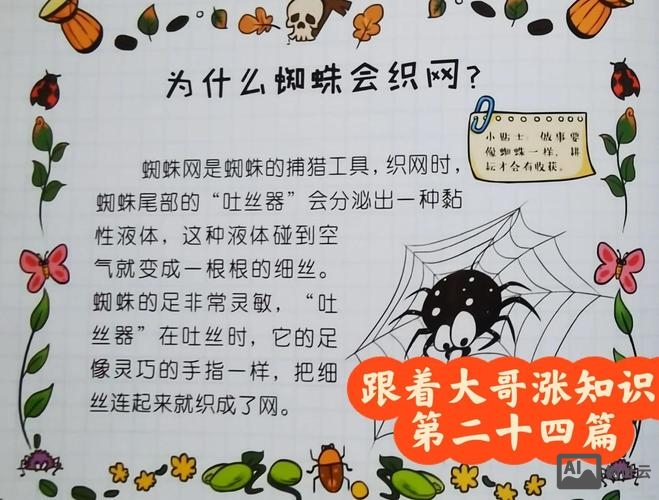 为什么蜘蛛会织网?
小贴士:做事要
像蜘蛛一样,耕
耘才会有收获。
蜘蛛网是蜘蛛的捕猎工具,织网时,
蜘蛛尾部的“吐丝器”会分泌出一种黏
性液体,这种液体碰到空
气就变成一根根的细丝。
蜘蛛的足非常灵敏,“吐
丝器”在吐丝时,它的足
像灵巧的手指一样,把细
丝连起来就织成了网。
跟着大哥涨知识
第二十四篇
AI
云